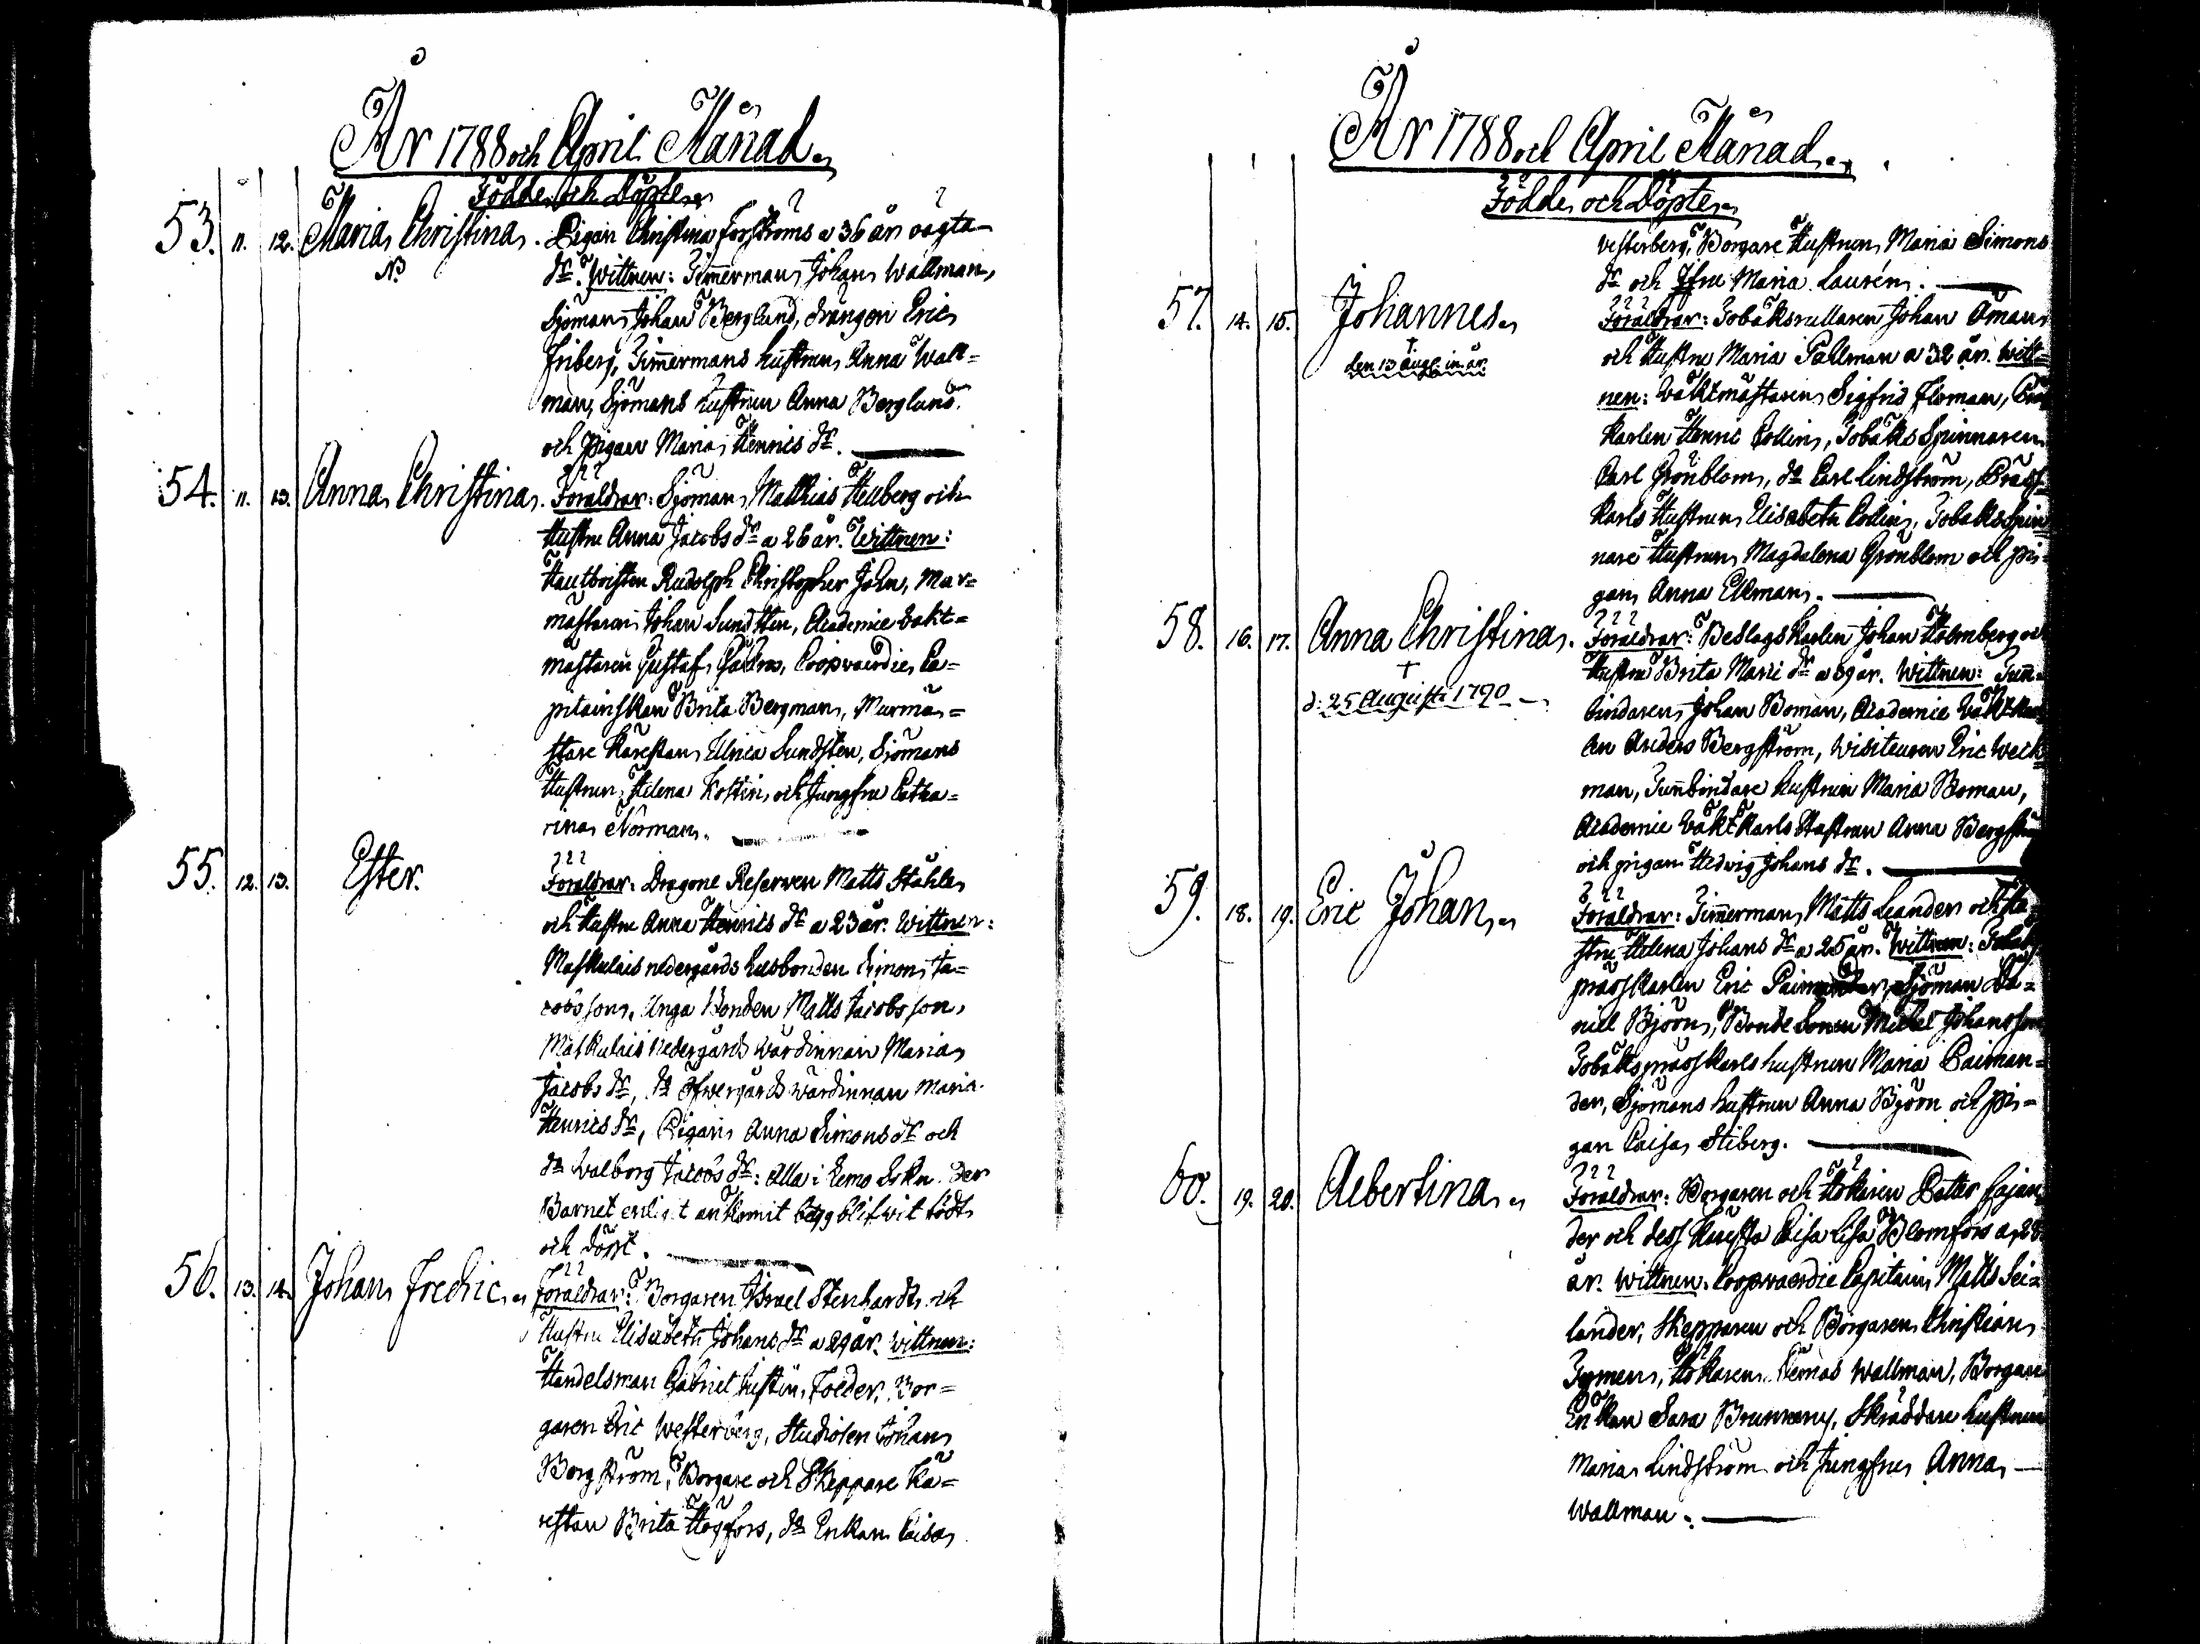 År 1788 och April Månad
Födde och Döpte
53. 11. 12. Maria Christina. Pigan Christina Forströms a 36 år oägta
NB dr. Wittnen: Timmerman Johan Wallman,
Sjöman Johan Berglund, drängen Eric
Friberg, Timmermans hustrun Anna Wall=
man, Sjömans hustrun Anna Berglund
och Pigan Maria Henrics dr.
54. 11. 13. Anna Christina. Föräldrar: Sjöman Matthias Hellberg och
Hustru Anna Jacobs dr a 26 år. Wittnen:
Hautboisten Rudolph Christopher John, Mur=
mästaren Johan Sundsten, Academie vakt=
mästaren Gustaf, Coopvaerdie Ca=
pitainskan Brita Bergman, Murmä=
stare Kärestan Ulrica Sundsten, Sjömans
Hustrun Helena Kostin, och Jungfru Catha=
rina Norman.
55. 12. 13. Ester. Föräldrar: Dragone Reserven Matts Ståhle
och Hustru Anna Henrics dr a 23 år. Wittnen:
Maskulais nedergårds husbonden Simon Ja=
cobsson, Unga Bonden Matts Jacobsson,
Maskulais Nedergårds Wärdinnan Maria
Jacobs dr, do Öfwergårds wärdinnan Maria
Henrics dr, Pigan Anna Simons dr och
do Walborg Jacobs dr: Alla i Lemo Sokn. der
Barnet enligt ankomit betyg blifwit födt
och döpt.
56. 13. 14. Johan Fredric. Föräldrar: Borgaren Israel Stenhardt och
Hustru Elisabeth Johans dr a 29 år. Wittnen:
Handelsman Gabriel Justin, Borgaren
garen Eric Westerberg, Studiosen Johan
Bergström, Borgare och Skeppare Kä=
restan Brita Högfors, do Enkan Caisa
År 1788 och April Månad
Födde och Döpte
Westerberg, Borgare Hustrun Maria Simons
dr och Jfru Maria Laurén.
57. 14. 15. Johannes. Föräldrar: Tobaksrullaren Johan Öman
† och Hustru Maria Pallman a 32 år. Witt=
den 13 Aug. in. år. nen: Waktmästaren Sigfrid Floman,
karlen Henric Collin, Tobaks Spinnaren
Carl Grönblom, do Carl Lindström, Präss=
karls Hustrun Elisabeth Collin, Tobaks Spin
nare Hustrun Magdalena Grönblom och Pi=
gan Anna Ekman.
58. 16. 17. Anna Christina. Föräldrar: Beslags Karlen Johan Holmberg och
† Hustru Brita Marie dr a 39 år. Wittnen: Tunn=
d. 25 Augusti 1790 bindaren Johan Boman, Academie Wakt kar
len Anders Bergström, Visiteuren Eric Weck=
man, Tunnbindare hustrun Maria Boman,
Academie Wakt Karls Hustrun Anna Bergström
och pigan Hedwig Johans dr.
59. 18. 19. Eric Johan. Föräldrar: Timmerman Matts Leander och Hu=
stru Helena Johans dr a 25 år. Wittnen: Tobaks
prässkarlen Eric Paimander, Sjöman Da=
niel Björn, Bonde Sonen Michel Johansson
Tobaksprässkarls hustrun Maria Paiman=
der, Sjömans hustrun Anna Björn och Pi=
gan Caisa Stiberg.
60. 19. 20. Albertina. Föräldrar: Borgaren och Hökaren Petter Cajan
der och dess Käresta Caisa Lisa Blomfors a 28
år. Wittnen: Coopvaerdie Capitain Matts Sei=
lander, Skepparen och Borgaren Christian
Tymen, Hökaren Wallman, Borgare
Enkan Sara Brunnering, Skräddare hustrun
Maria Lindström och Jungfru Anna
Wallman.